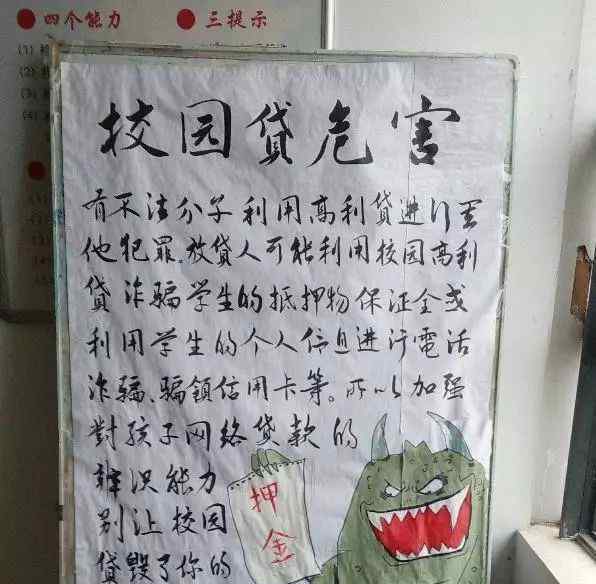 四个能力 三提示
(1)
(2)
(3)
(4)
校园贷危害
有不法分子利用高利贷进行其
他犯罪.放贷人可能利用校园高利
贷诈骗学生的抵押物保证金或
利用学生的个人信息进行電话
诈骗、骗領信用卡等。所以加强
對孩子网络贷款的
辨识能力
别让校园
贷毁了你的
押金